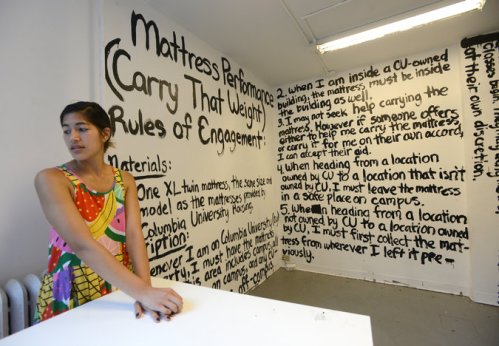 Mattress Performance
(Carry That Weight)
Rules of Engagement:
Materials:
One XL twin mattress, the same size and
model as the mattresses provided by
Columbia University Housing.
I am on Columbia University
I must have the mattress
area includes
on campus, and any CU-
off-campus
2. When I am inside a CU-owned
building, the mattress must be inside
the building as well.
3. I may not seek help carrying the
mattress. However if someone offers
either to help me carry the mattress,
or carry it for me on their own accord,
I can accept their aid.
4. When heading from a location
owned by CU to a location that isn't
owned by CU, I must leave the mattress
in a safe place on campus.
5. When heading from a location
not owned by CU to a location owned
by CU, I must first collect the mat-
tress from wherever I left it pre-
viously.
at their own
discretion.